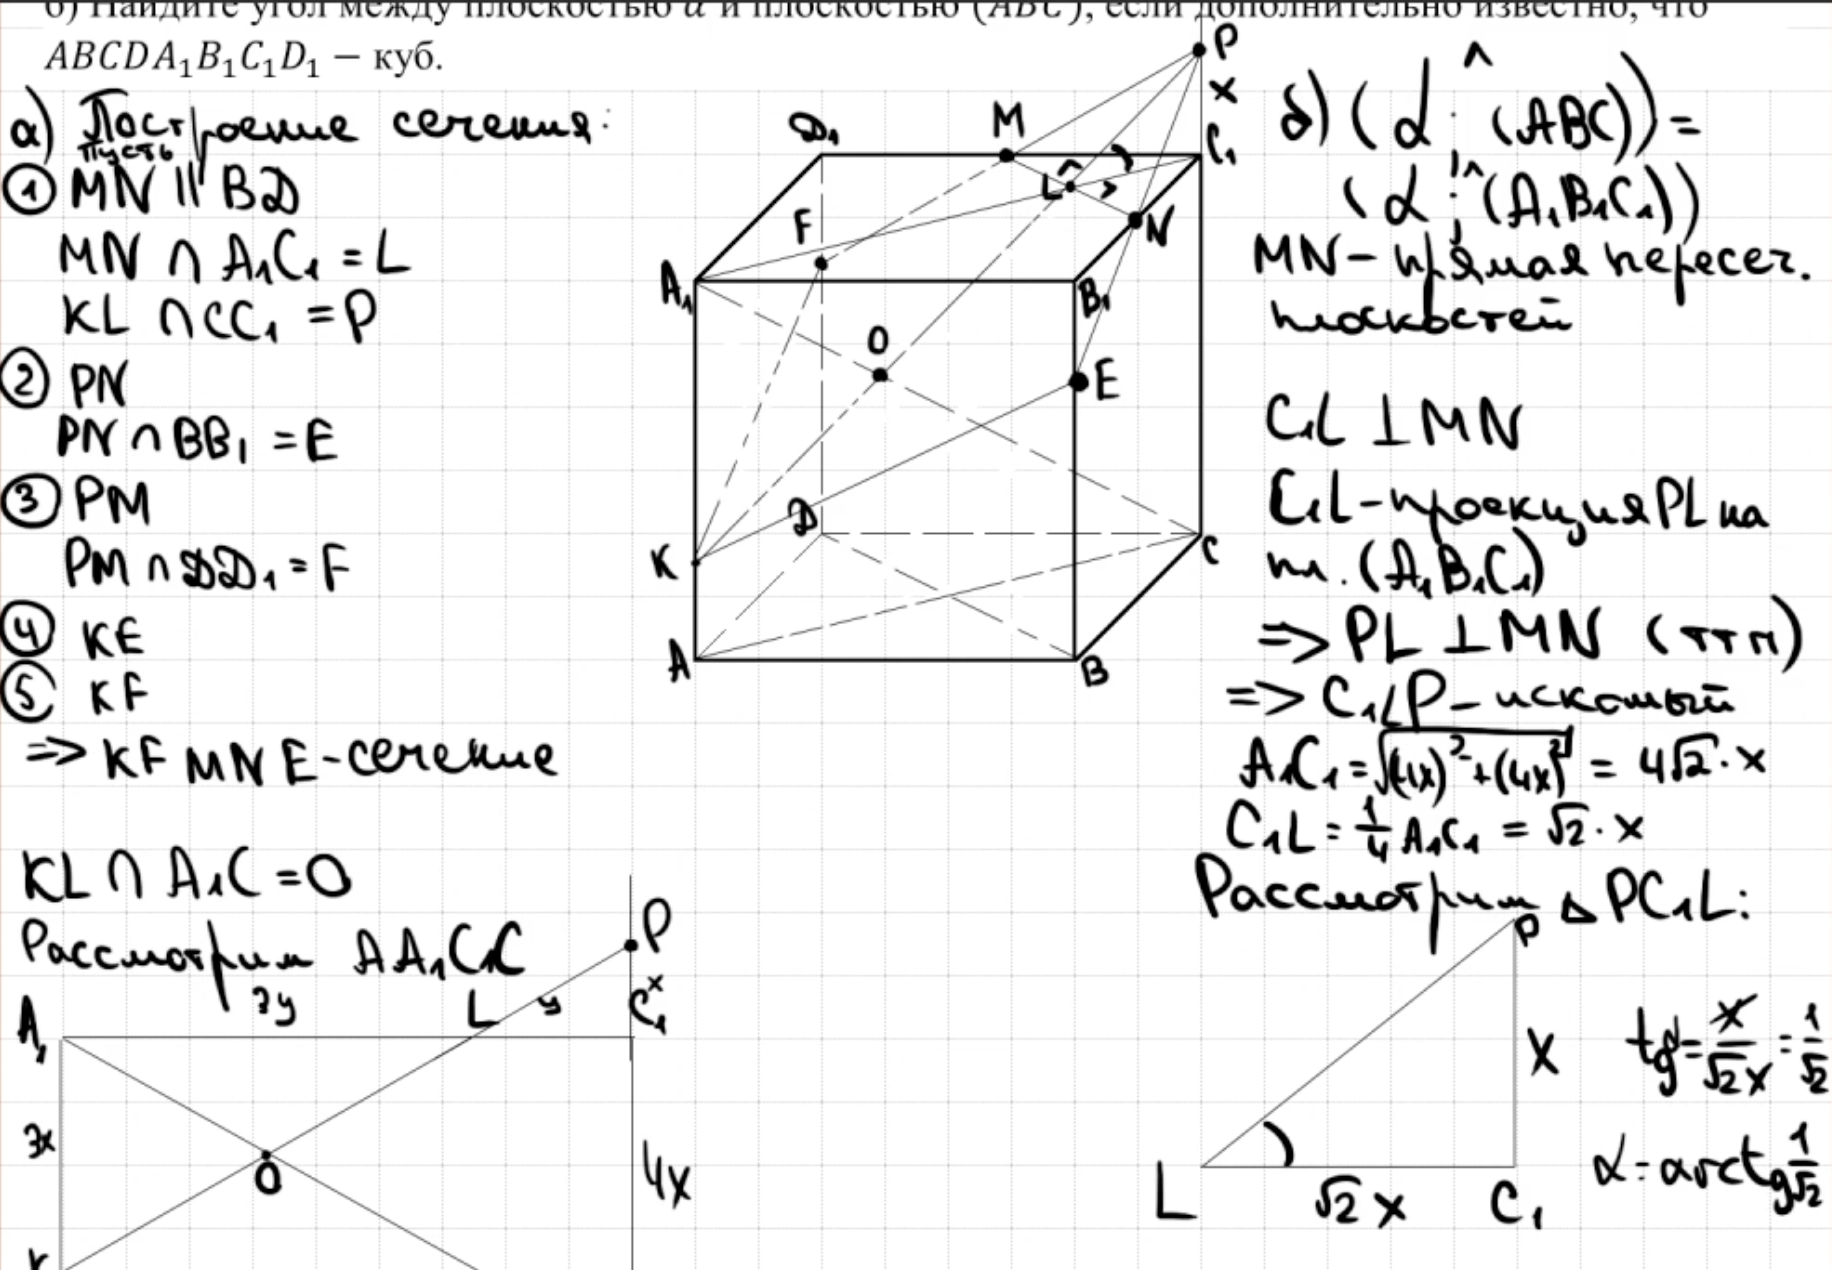 б) Найдите угол между плоскостью α и плоскостью (ABC), если дополнительно известно, что
ABCDA₁B₁C₁D₁ – куб.
а) Построение сечения:
пусть
① MN || BD
MN ∩ A₁C₁ = L
KL ∩ CC₁ = P
② PN
PN ∩ BB₁ = E
③ PM
PM ∩ DD₁ = F
④ KE
⑤ KF
=> KFMNE - сечение
KL ∩ A₁C = O
Рассмотрим AA₁C₁C
A₁
3y
L
y
P
x
C₁
3x
O
4x
K
P
x
M
D₁
C₁
L
N
F
A₁
B₁
O
E
D
K
C
A
B
б) (α ;^ (ABC)) =
(α ;^ (A₁B₁C₁))
MN - прямая пересеч.
плоскостей
C₁L ⊥ MN
C₁L - проекция PL на
пл. (A₁B₁C₁)
=> PL ⊥ MN (ттп)
=> C₁LP - искомый
A₁C₁ = √((4x)² + (4x)²) = 4√2 · x
C₁L = 1/4 A₁C₁ = √2 · x
Рассмотрим △ PC₁L:
P
x
L
√2 x
C₁
tgα = x/√2x = 1/√2
α = arctg 1/√2